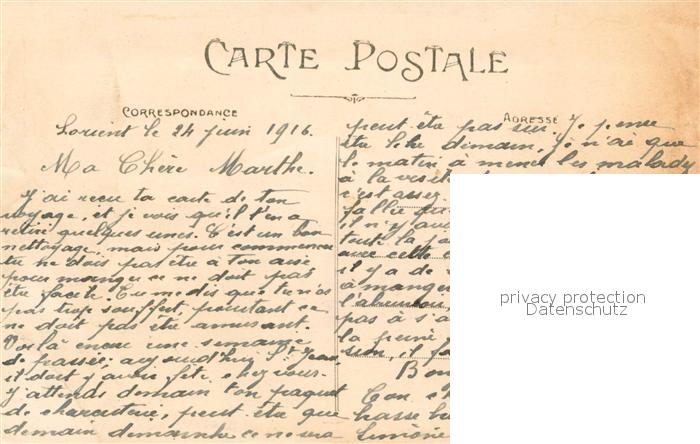 CARTE POSTALE
CORRESPONDANCE
ADRESSE
Lorient le 24 juin 1916.
Ma Chère Marthe.
J'ai recu ta carte de ton
voyage, et je vois qu'il t'en a
retiré quelques unes. C'est un bon
nettoyage, mais pour commencer
tu ne dois pas être à ton aise
pour manger ce ne doit pas
être facile. Tu me dis que tu n'as
pas trop souffert, pourtant ce
ne doit pas être amusant.
Voilà encore une semaine
de passée, aujourd'hui St Jean,
il doit y avoir fête chez vous.
J'attends demain ton paquet
de charcuterie, peut être que
demain dimanche ce ne sera
peut être pas sur. Je pense
être libre dimain, je n'ai que
le matin à mener les malades
à la
c'est assez
il n'y
toute la
avec cette
il y a de
à manger
pas à s'a
la
il
Bon
Ton
privacy protection
Datenschutz